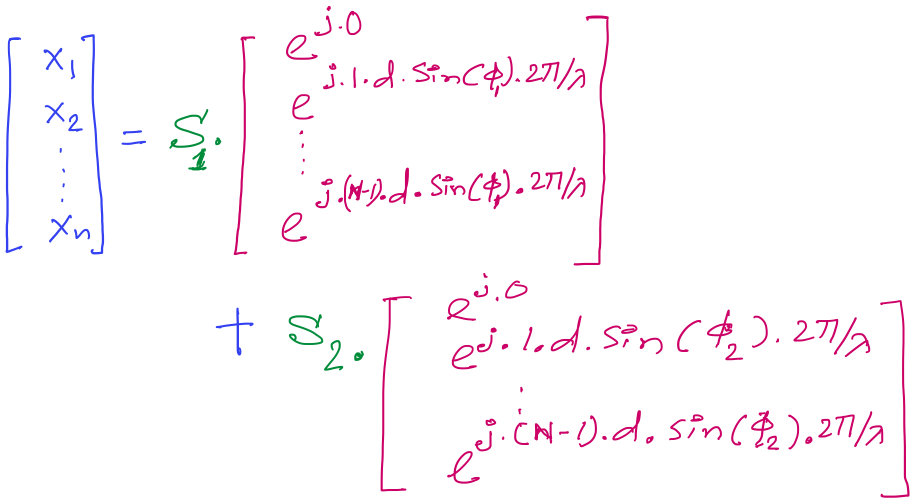 [x₁ x₂ ⋮ xₙ] = S₁ . [
e^{j.0}
e^{j.1.d.Sin(ϕ₁).2π/λ}
⋮
e^{j.(N-1).d.Sin(ϕ₁).2π/λ}
]
+ S₂ . [
e^{j.0}
e^{j.1.d.Sin(ϕ₂).2π/λ}
⋮
e^{j.(N-1).d.Sin(ϕ₂).2π/λ}
]